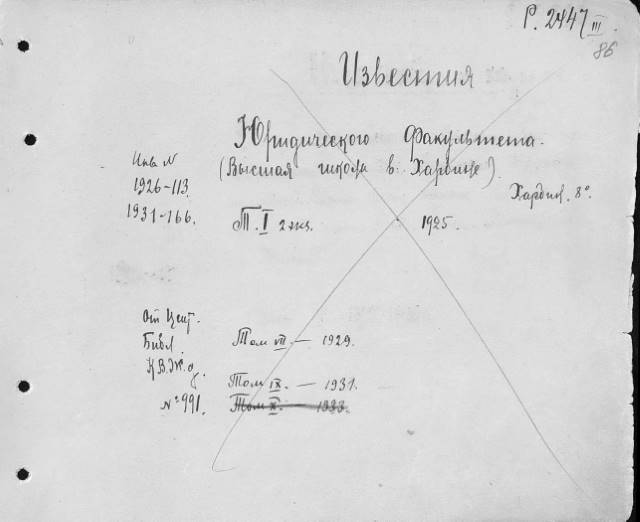 Р. 2447 III.
86
Известия
Юридического Факультета.
(Высшая школа в Харбине).
Харбин. 8°.
Инв N
1926-113.
1931-166.
Т. I 2 экз. 1925.
От Цент.
Библ.
К.В.Ж.д.
№ 991.
Том VII. — 1929.
Том IX. — 1931.
Том X. 1933.